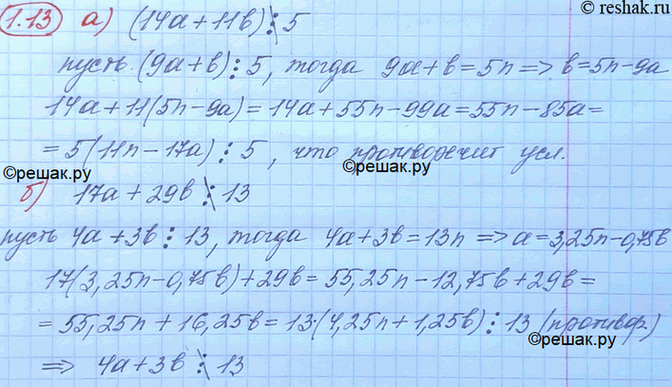 © reshak.ru
1.13 а) (14a+11b)⋮̸5
пусть (9a+b)⋮5, тогда 9a+b=5n=>b=5n-9a
14a+11(5n-9a)=14a+55n-99a=55n-85a=
=5(11n-17a)⋮5, что противоречит усл.
©решак.ру ©решак.ру
б) 17a+29b⋮̸13
пусть 4a+3b⋮13, тогда 4a+3b=13n=>a=3,25n-0,75b
17(3,25n-0,75b)+29b=55,25n-12,75b+29b=
=55,25n+16,25b=13(4,25n+1,25b)⋮13 (противор.)
©решак.ру ©решак.ру
=> 4a+3b⋮̸13